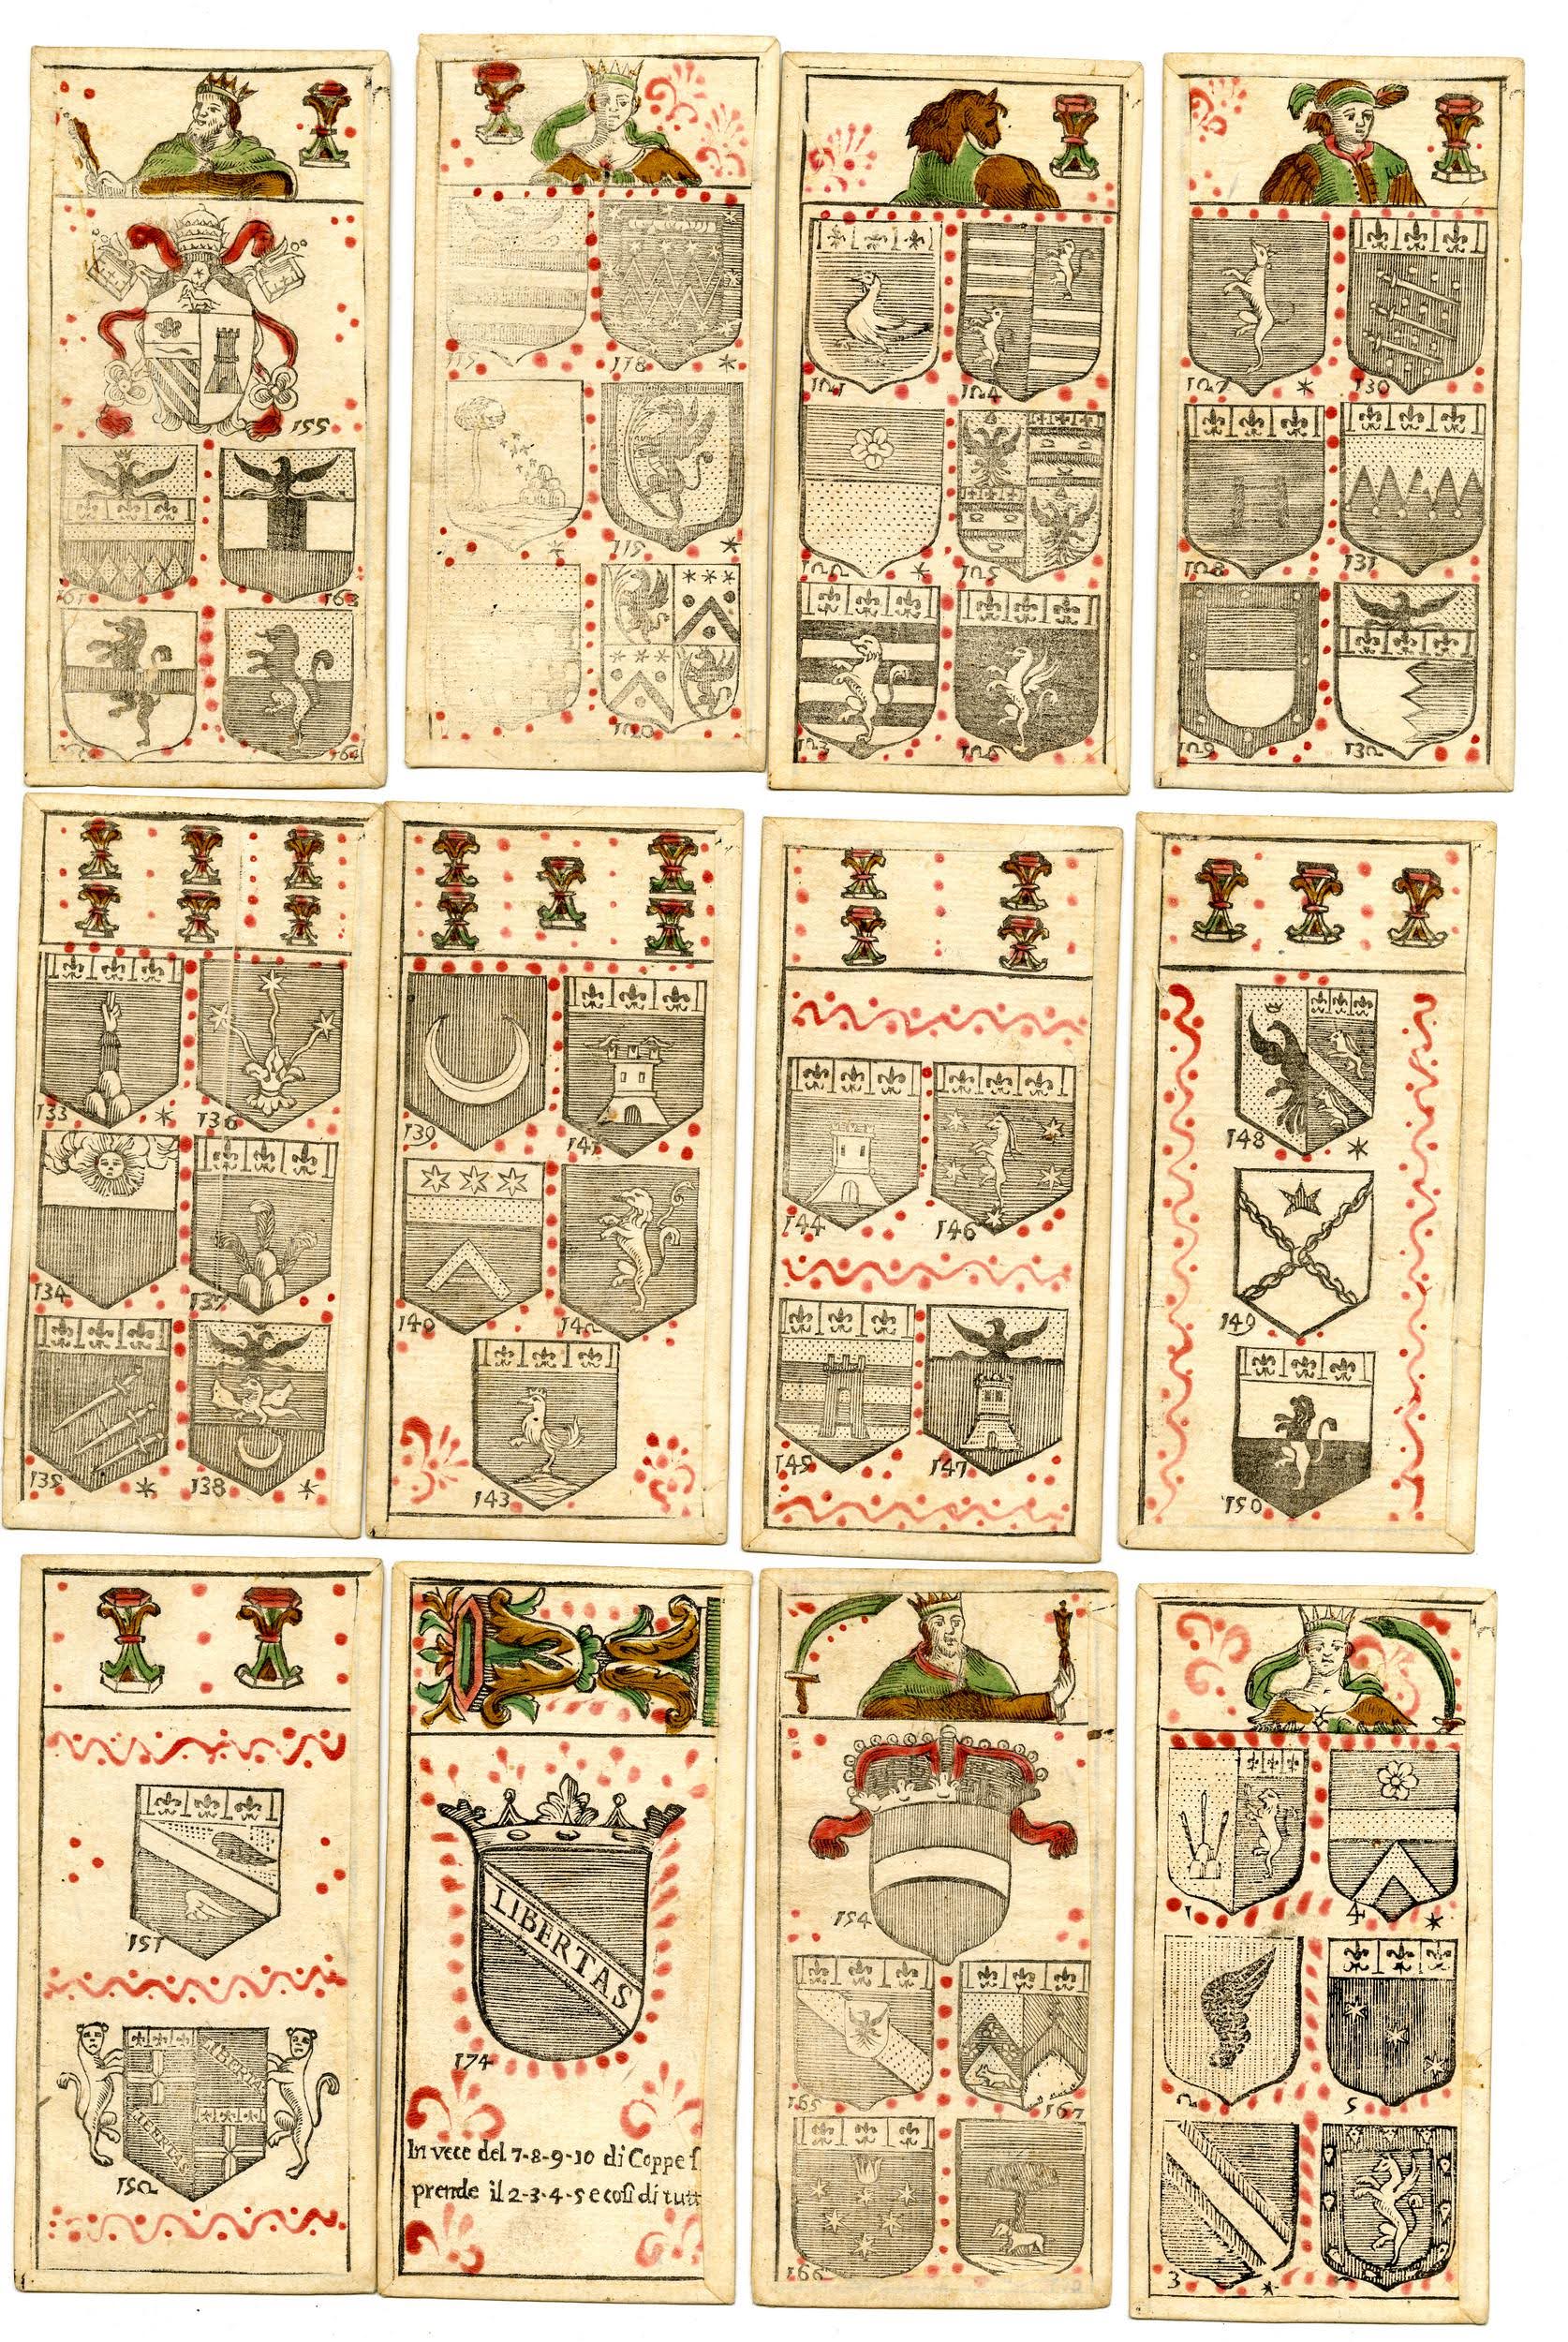 155
161
163
164
117
118
119
120
121
124
122
125
123
126
127
130
128
131
129
132
133
136
134
137
135
138
139
141
140
142
143
144
146
145
147
148
149
150
151
LIBERTAS
LIBERTAS
152
LIBERTAS
174
In vece del 7-8-9-10 di Coppe s
prende il 2-3-4-5 e cosi di tutt
154
165
167
166
1
4
2
5
3